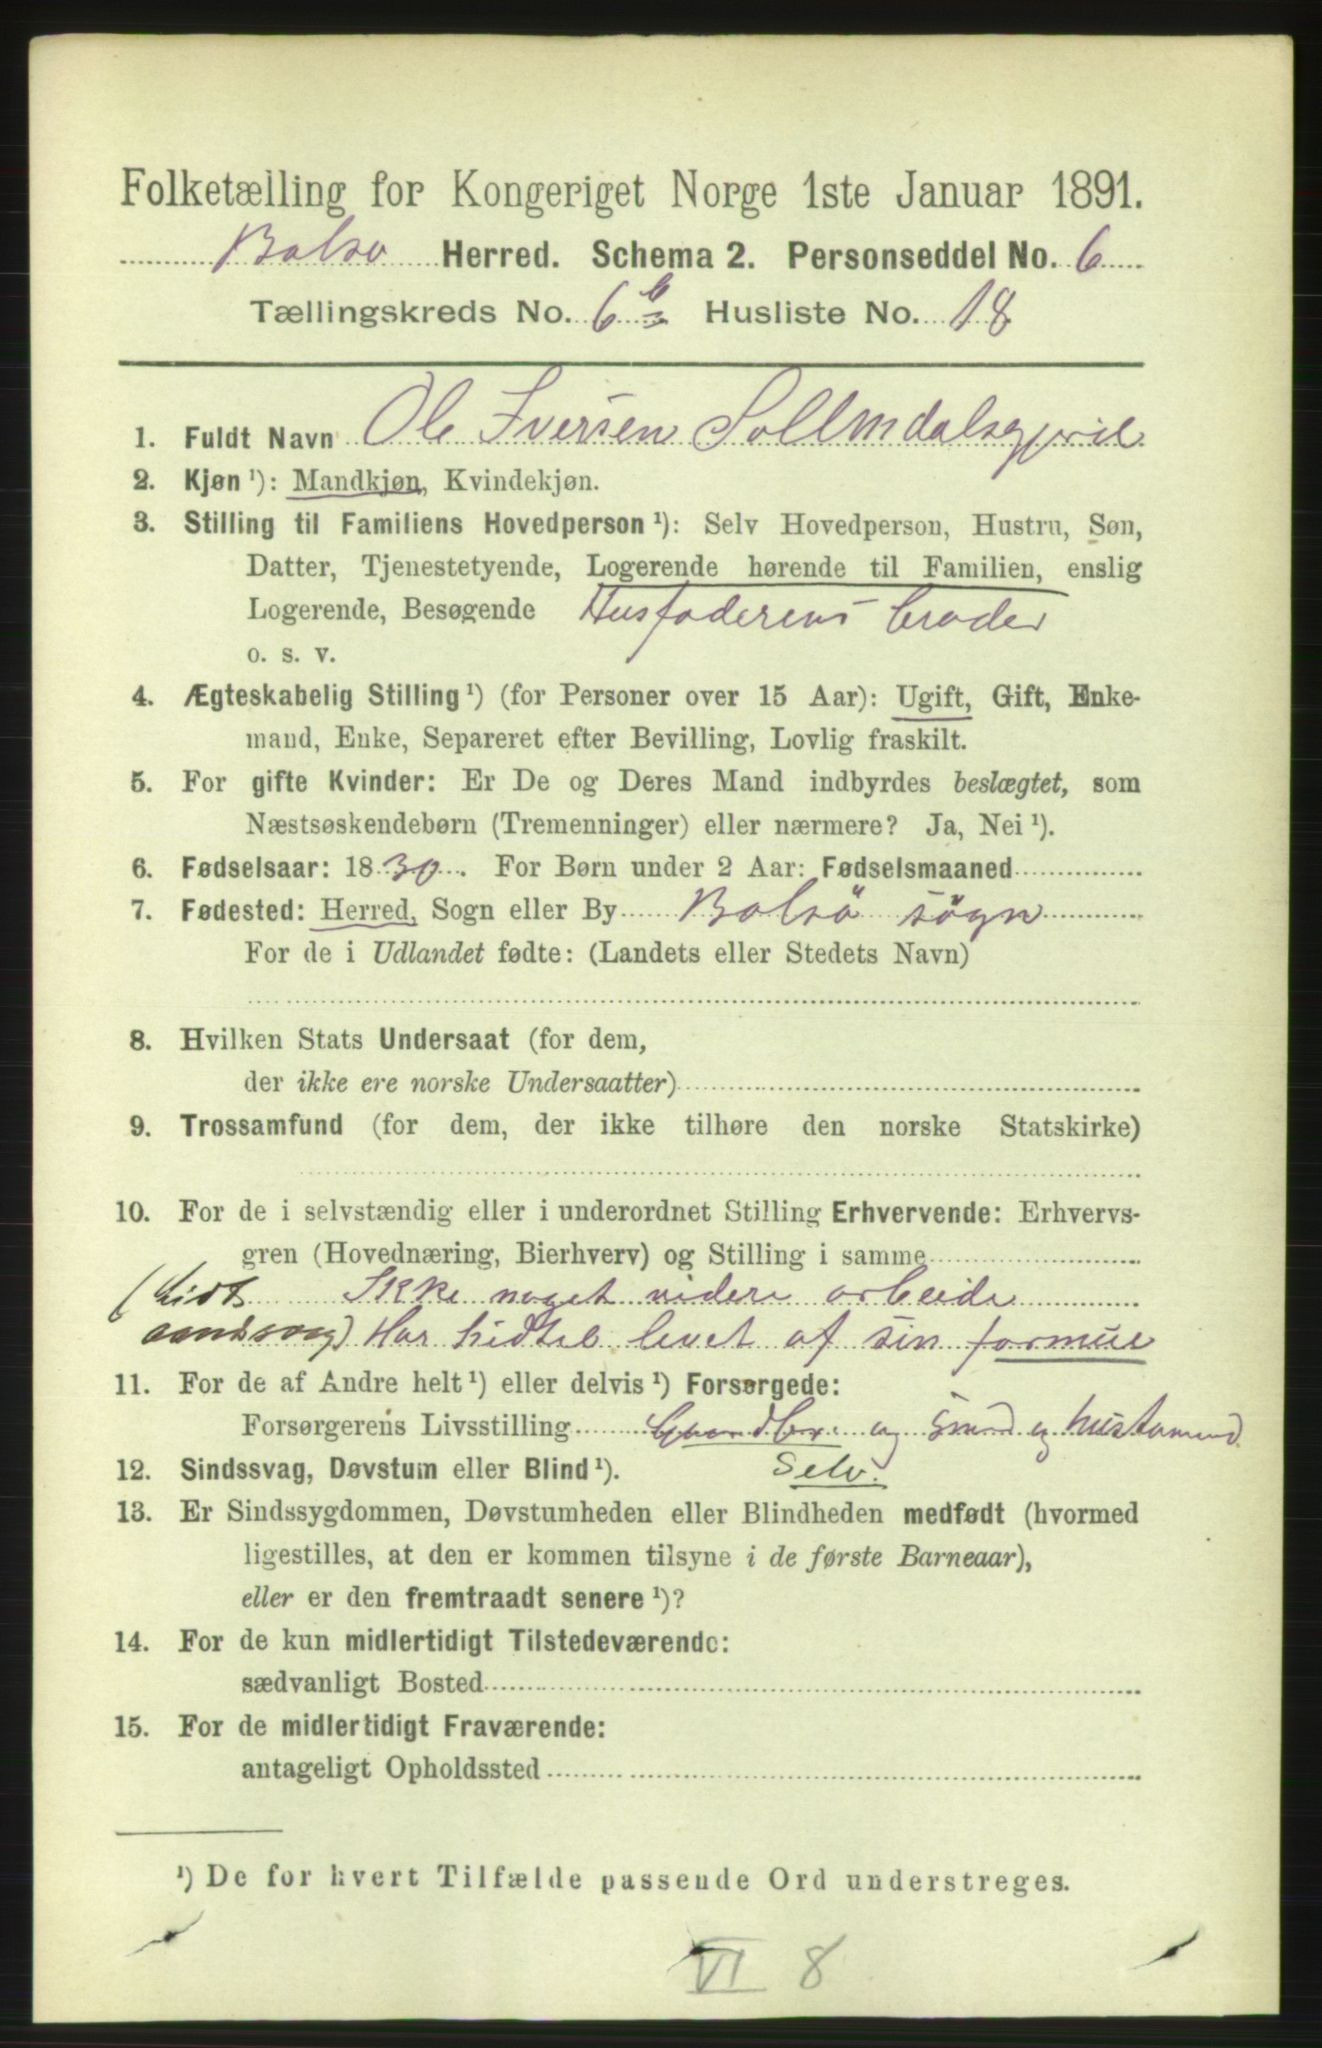 Folketælling for Kongeriget Norge 1ste Januar 1891.
Bolsø Herred. Schema 2. Personseddel No. 6
Tællingskreds No. 6 b Husliste No. 18
1. Fuldt Navn Ole Iversen
2. Kjøn ¹): Mandkjøn, Kvindekjøn.
3. Stilling til Familiens Hovedperson ¹): Selv Hovedperson, Hustru, Søn,
Datter, Tjenestetyende, Logerende hørende til Familien, enslig
Logerende, Besøgende Husfaderens broder
o. s. v.
4. Ægteskabelig Stilling ¹) (for Personer over 15 Aar): Ugift, Gift, Enke-
mand, Enke, Separeret efter Bevilling, Lovlig fraskilt.
5. For gifte Kvinder: Er De og Deres Mand indbyrdes beslægtet, som
Næstsøskendebørn (Tremenninger) eller nærmere? Ja, Nei ¹).
6. Fødselsaar: 1830. For Børn under 2 Aar: Fødselsmaaned
7. Fødested: Herred, Sogn eller By Bolsö sögn
For de i Udlandet fødte: (Landets eller Stedets Navn)
8. Hvilken Stats Undersaat (for dem,
der ikke ere norske Undersaatter)
9. Trossamfund (for dem, der ikke tilhøre den norske Statskirke)
10. For de i selvstændig eller i underordnet Stilling Erhvervende: Erhvervs-
gren (Hovednæring, Bierhverv) og Stilling i samme
(Lidt Ikke noget videre arbeide
aandsvag) Har hidtil levet af sin formue
11. For de af Andre helt ¹) eller delvis ¹) Forsørgede:
Forsørgerens Livsstilling Gaardbr. og Smed og hustømmerm
12. Sindssvag, Døvstum eller Blind ¹). Selv.
13. Er Sindssygdommen, Døvstumheden eller Blindheden medfødt (hvormed
ligestilles, at den er kommen tilsyne i de første Barneaar),
eller er den fremtraadt senere ¹)?
14. For de kun midlertidigt Tilstedeværende:
sædvanligt Bosted
15. For de midlertidigt Fraværende:
antageligt Opholdssted
¹) De for hvert Tilfælde passende Ord understreges.
VI 8